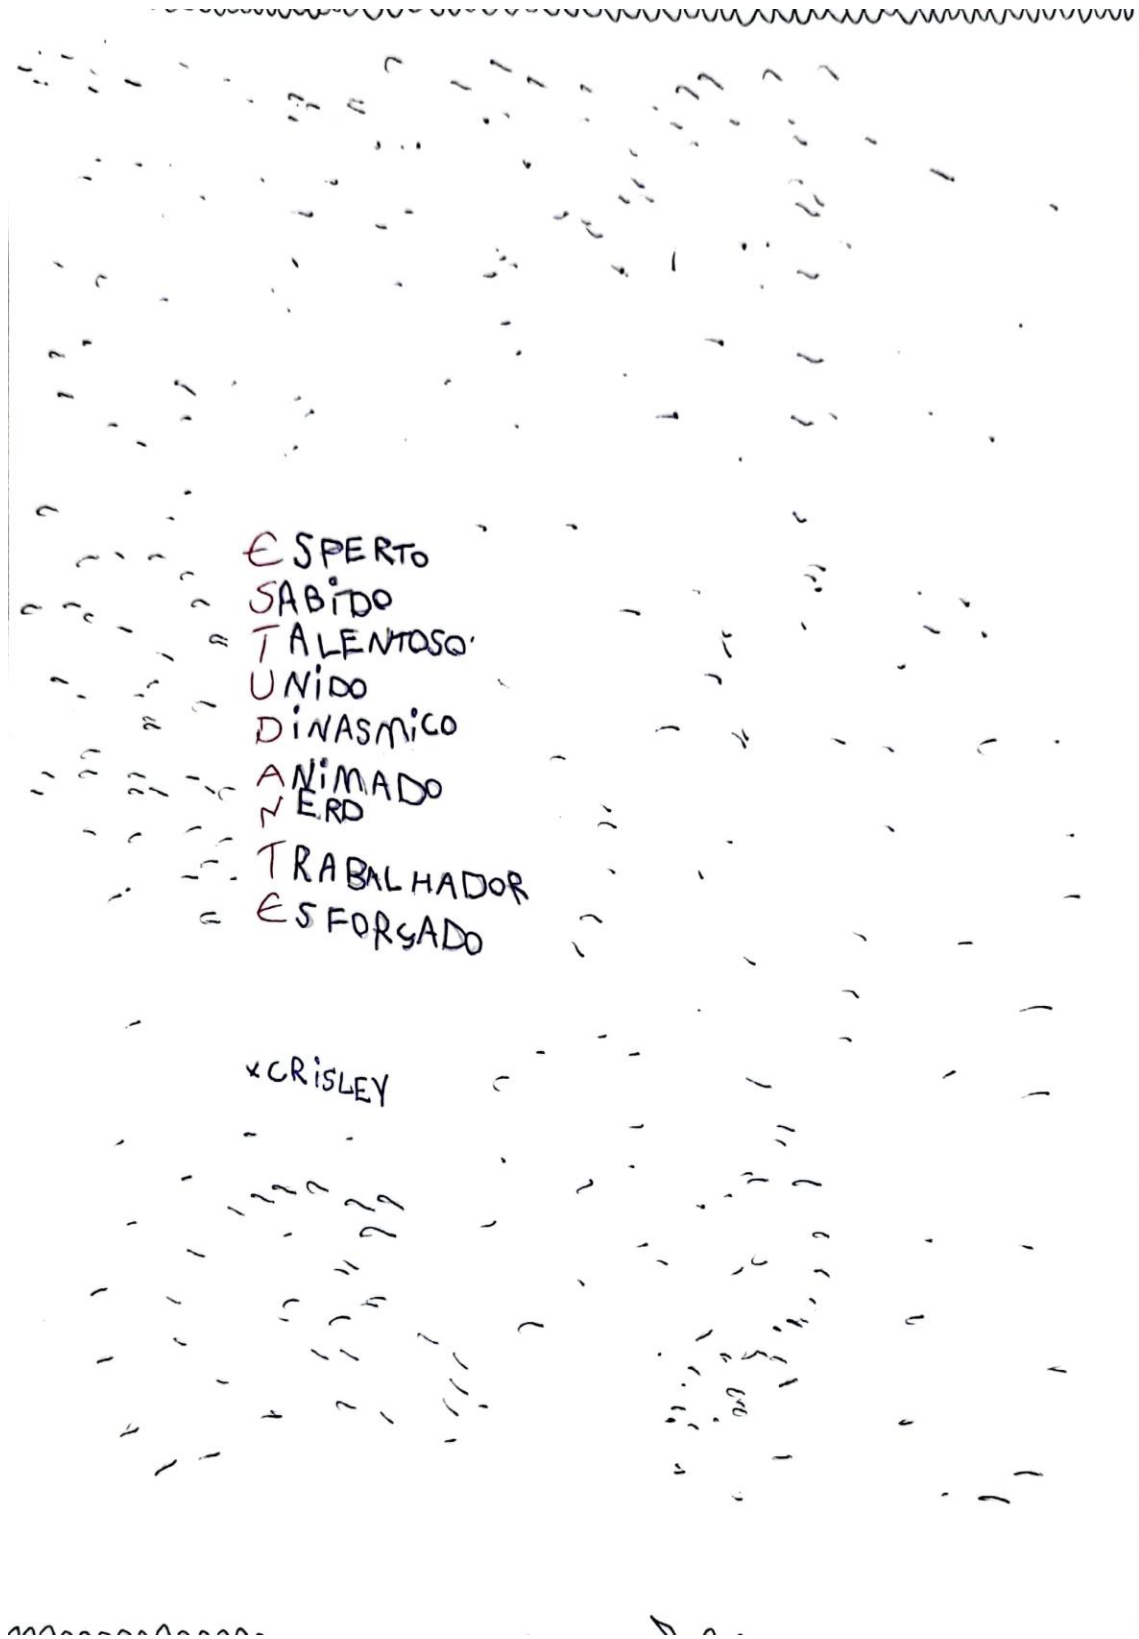 ESPERTO
SABIDO
TALENTOSO
UNIDO
DINASMICO
ANIMADO
NERD
TRABALHADOR
ESFORÇADO
xCRISLEY